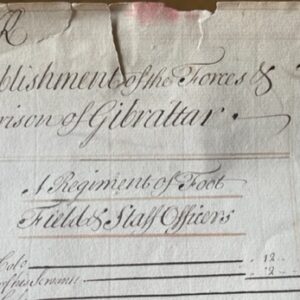 R
blishment of the Forces &
rison of Gibraltar.
A Regiment of Foot
Field & Staff Officers
Colo 12
of his Servants 12